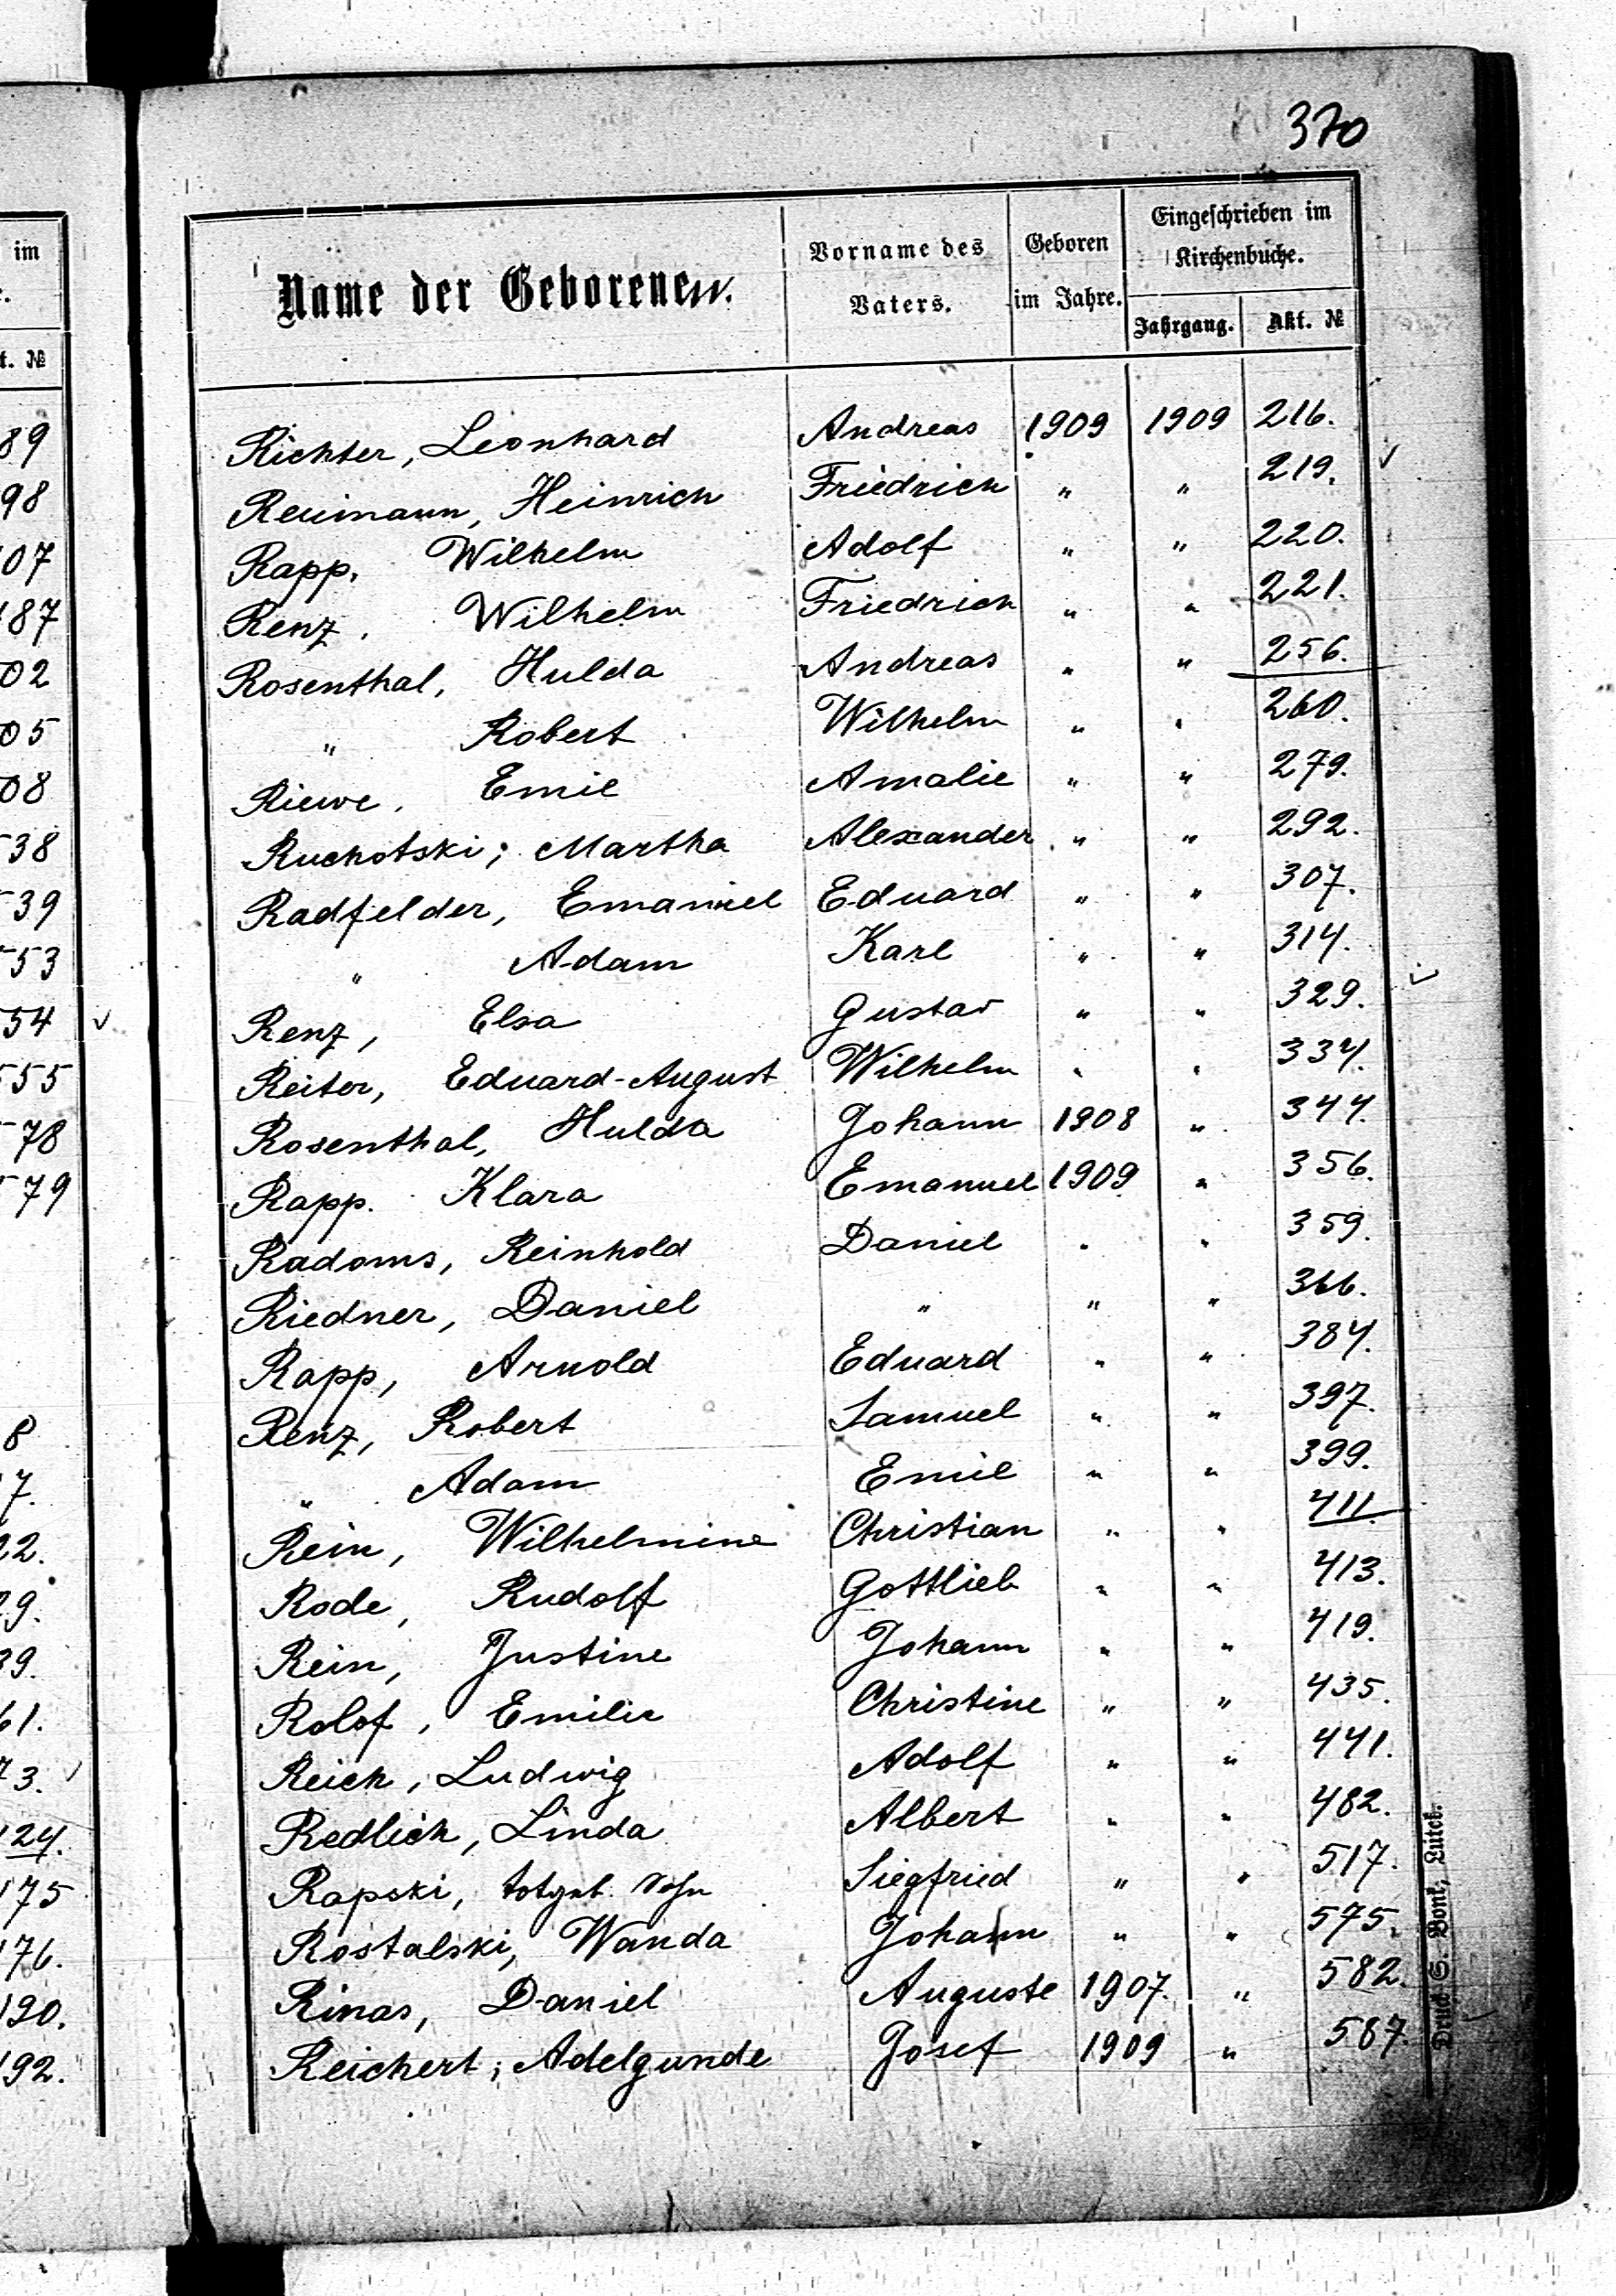 370
Name der Geborenen.
Vorname des Vaters.
Geboren im Jahre.
Eingeschrieben im Kirchenbuche.
Jahrgang. Akt. №
Richter, Leonhard Andreas 1909 1909 216.
Reumann, Heinrich Friedrich " " 219. ✓
Rapp, Wilhelm Adolf " " 220.
Renz. Wilhelm Friedrich " " 221.
Rosenthal, Hulda Andreas " " 256.
" Robert Wilhelm " " 260.
Riewe. Emil Amalie " " 279.
Ruchotski; Martha Alexander " " 292.
Radfelder, Emanuel Eduard " " 307.
" Adam Karl " " 314.
Renz, Elsa Gustav " " 329. ✓
Reiter, Eduard-August Wilhelm " " 334.
Rosenthal, Hulda Johann 1908 " 344.
Rapp. Klara Emanuel 1909 " 356.
Radoms, Reinhold Daniel " " 359.
Riedner, Daniel " " " 366.
Rapp, Arnold Eduard " " 384.
Renz, Robert Samuel " " 397.
" Adam Emil " " 399.
Rein, Wilhelmine Christian " " 411.
Rode, Rudolf Gottlieb " " 413.
Rein, Justine Johann " " 419.
Rolof, Emilie Christine " " 435.
Reich, Ludwig Adolf " " 441.
Redlich, Linda Albert " " 482.
Rapski, totgeb. Sohn Siegfried " " 517.
Rostalski, Wanda Johann " " 575.
Rinas, Daniel Auguste 1907. " 582.
Reichert; Adelgunde Josef 1909 " 587.
Druck S. Bonk, Lutck.
im
t. №
89
98
07
87
02
05
08
38
39
53
54 ✓
55
78
79
8
7.
22.
29.
39.
61.
73.
124.
175
176.
190.
192.